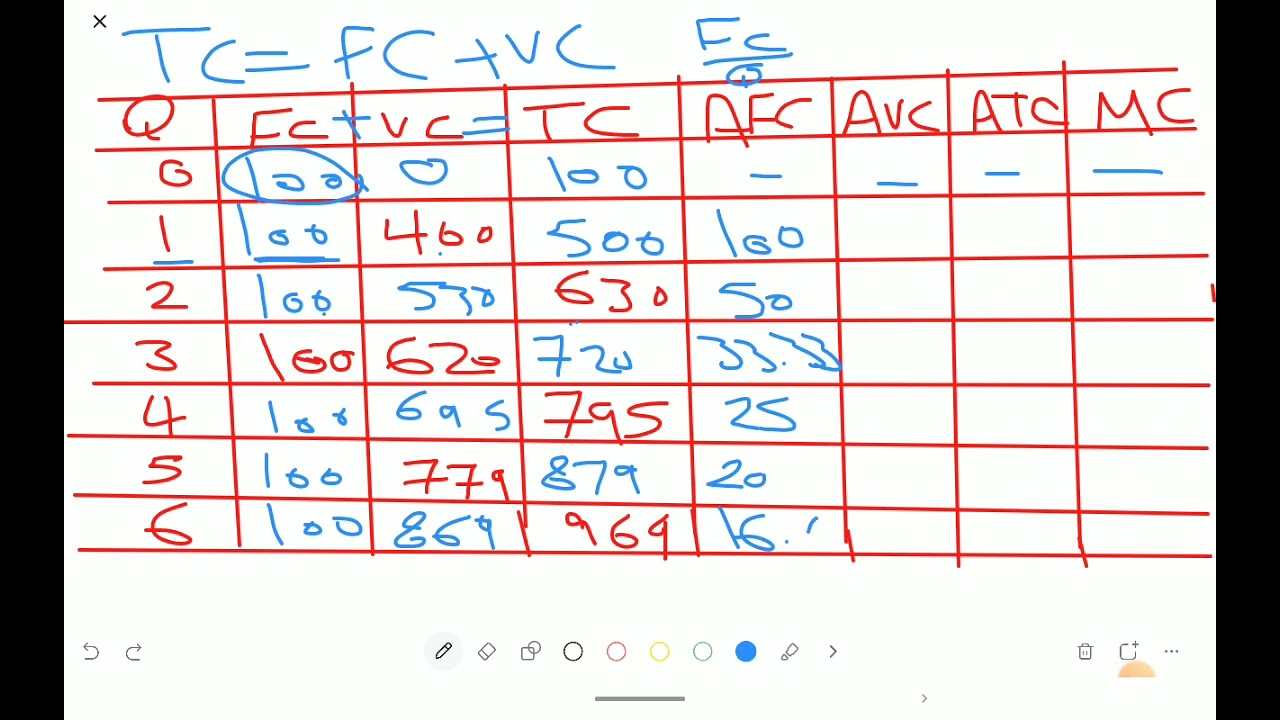 TC = FC + VC FC/Q
Q FC + VC = TC AFC AVC ATC MC
0 100 0 100 – – – –
1 100 400 500 100
2 100 530 630 50
3 100 620 720 33.33
4 100 695 795 25
5 100 779 879 20
6 100 869 969 16.